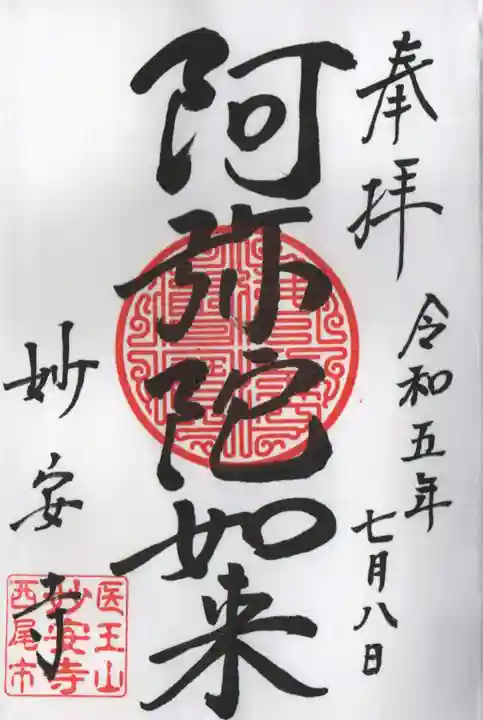 奉拝
令和五年
七月八日
阿弥陀如来
妙安寺
医王山
妙安寺
西尾市